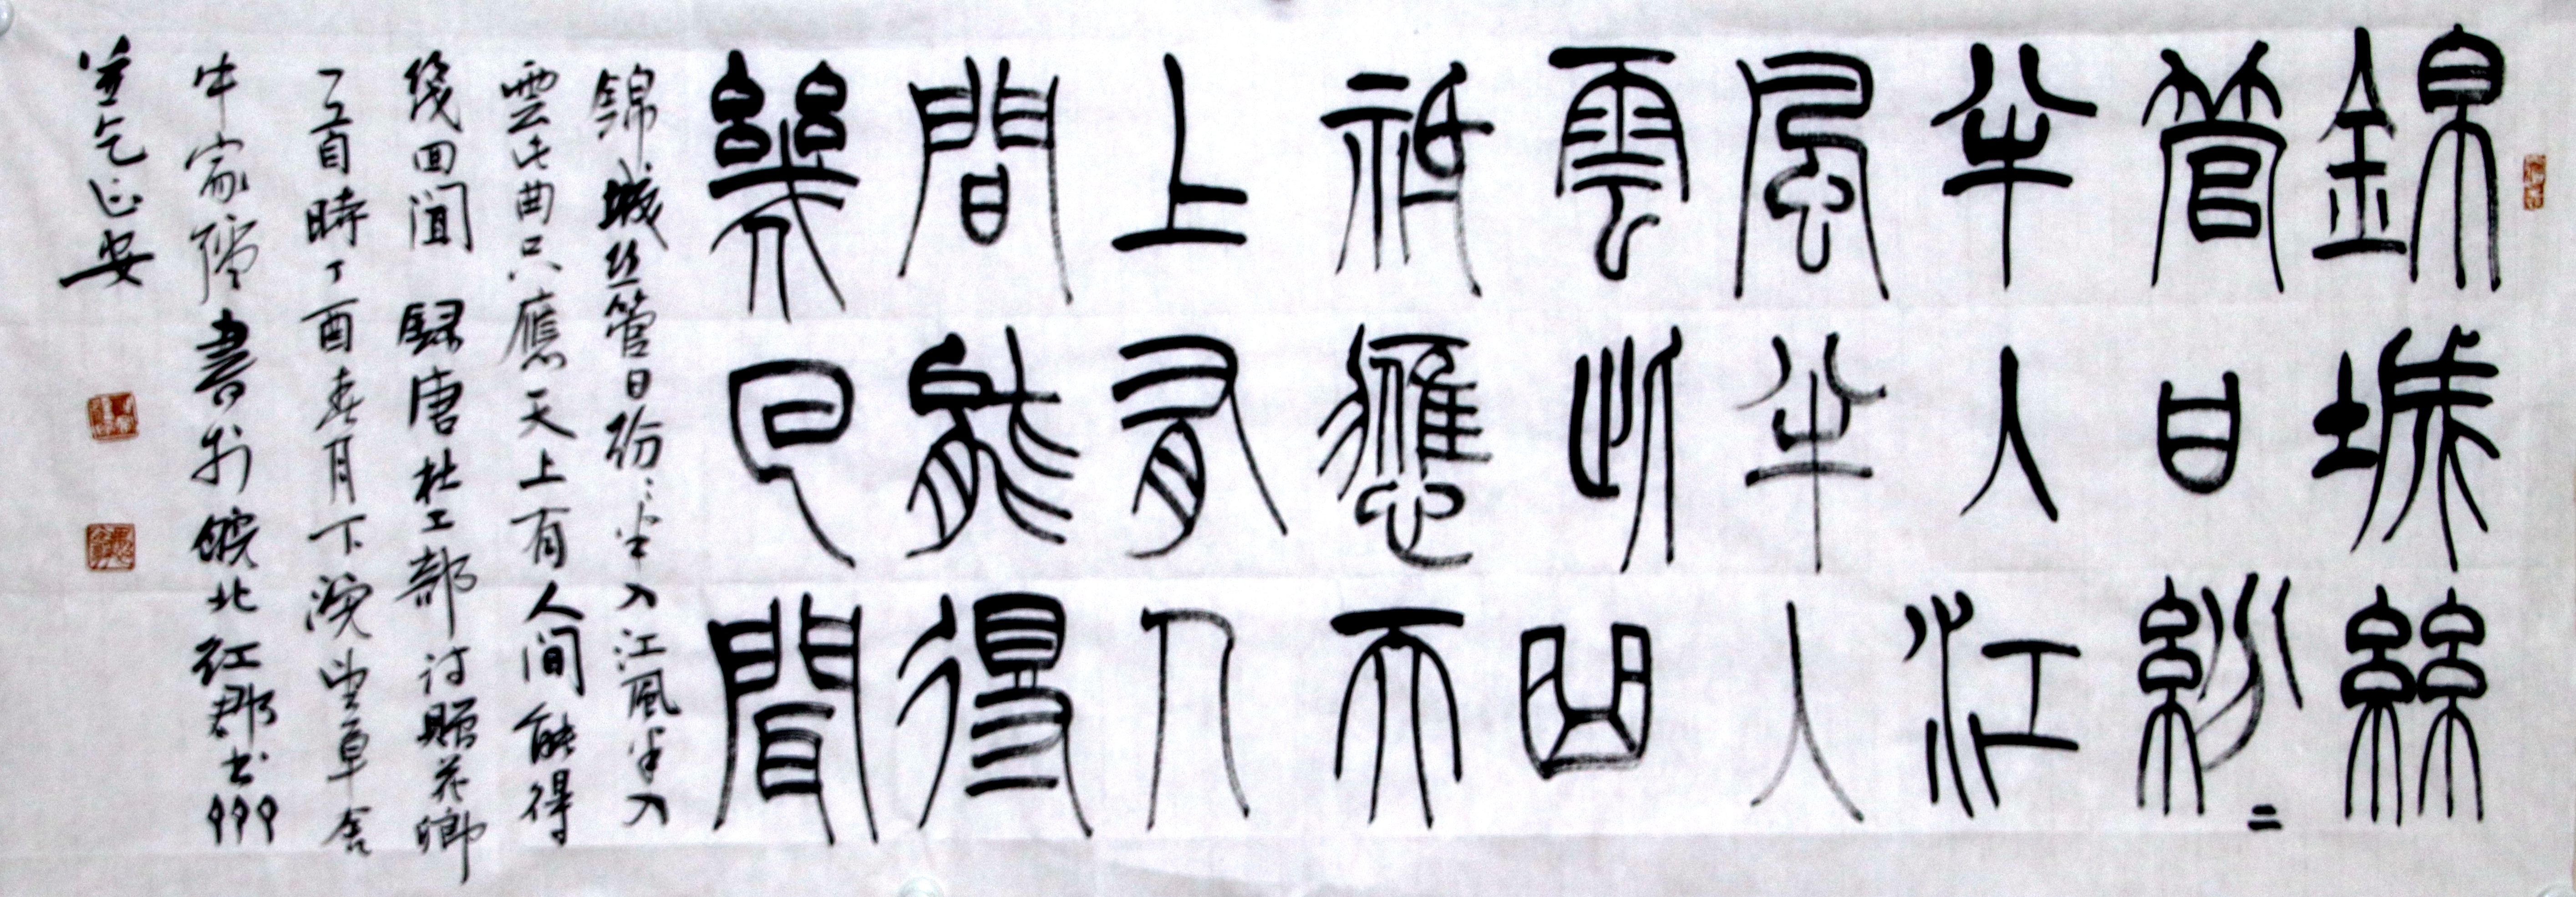 錦城絲
管日紛〻
半入江
風半入
雲此曲
祇應天
上有人
間能得
幾回聞
錦城丝管日紛〻半入江風半入
雲此曲只應天上有人间能得
幾回闻 录唐杜工部诗贈花卿
一首時丁酉春月下浣望草舍
牛家 書於皖北红郡
並乞正安